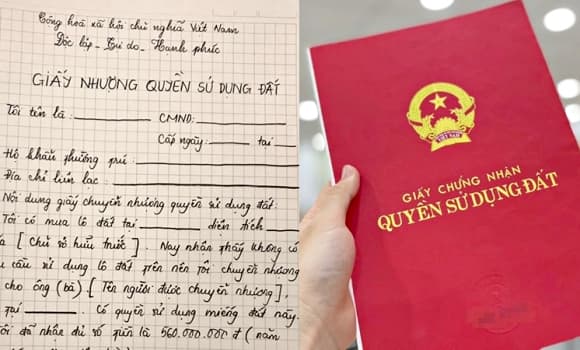 Cộng hoà xã hội chủ nghĩa Việt Nam
Độc lập - Tự do - Hạnh phúc
GIẤY NHƯỢNG QUYỀN SỬ DỤNG ĐẤT
Tôi tên là: CMND:
Cấp ngày: tại
Hộ khẩu thường trú:
Địa chỉ liên lạc:
Nội dung giấy chuyển nhượng quyền sử dụng đất:
Tôi có mua lô đất tại diện tích
[Chủ sở hữu trước]. Nay nhận thấy không có
cầu sử dụng lô đất trên nên tôi chuyển nhượng
cho ông (bà) [Tên người được chuyển nhượng],
tại . Có quyền sử dụng miếng đất này.
đã nhận đủ số tiền là 560.000.000 đ (năm
VIỆT NAM
GIẤY CHỨNG NHẬN
QUYỀN SỬ DỤNG ĐẤT